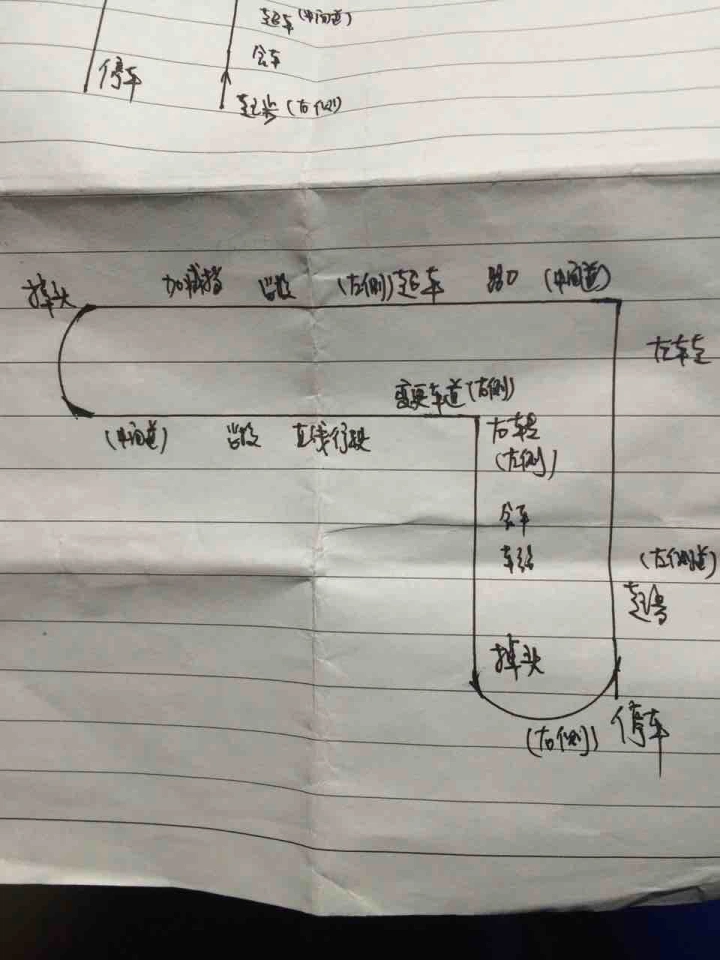 超车(中间道)
会车
停车
起步(右侧)
掉头
加减挡
(左侧)超车
路口
(中间道)
左车道
变更车道(右侧)
(中间道)
直线行驶
右转
(左侧)
会车
(右侧道)
掉头
(右侧)
停车